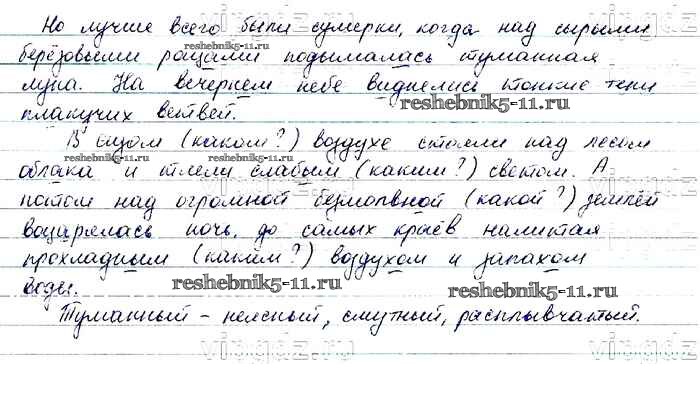 Но лучше всего были сумерки, когда над сырыми
берёзовыми рощами подымалась туманная
луна. На вечернем небе виднелись тонкие тени
плакучих ветвей.
В сизом (каком?) воздухе стояли над лесом
облака и тлели слабым (каким?) светом. А
потом над огромной безмолвной (какой?) землёй
воцарялась ночь, до самых краёв налитая
прохладным (каким?) воздухом и запахом
воды.
Туманный - неясный, смутный, расплывчатый.
reshebnik5-11.ru
reshebnik5-11.ru
reshebnik5-11.ru
reshebnik5-11.ru
reshebnik5-11.ru
reshebnik5-11.ru